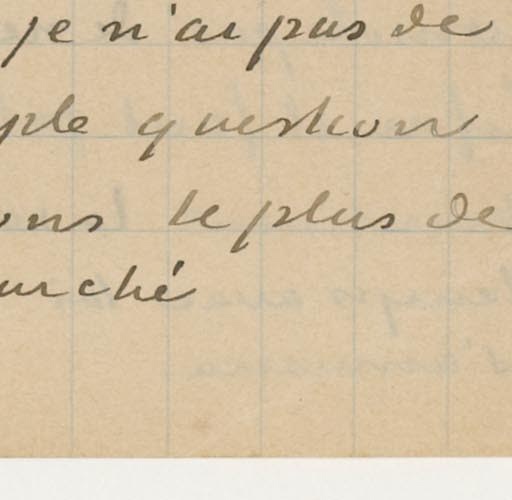 je n'ai pas de
ple question
ons le plus de
urché